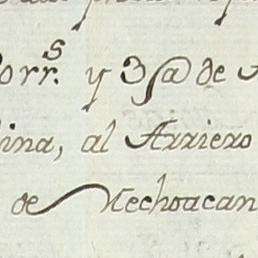 orr.s y 3ª de
ina, al Arriero
de Mechoacan